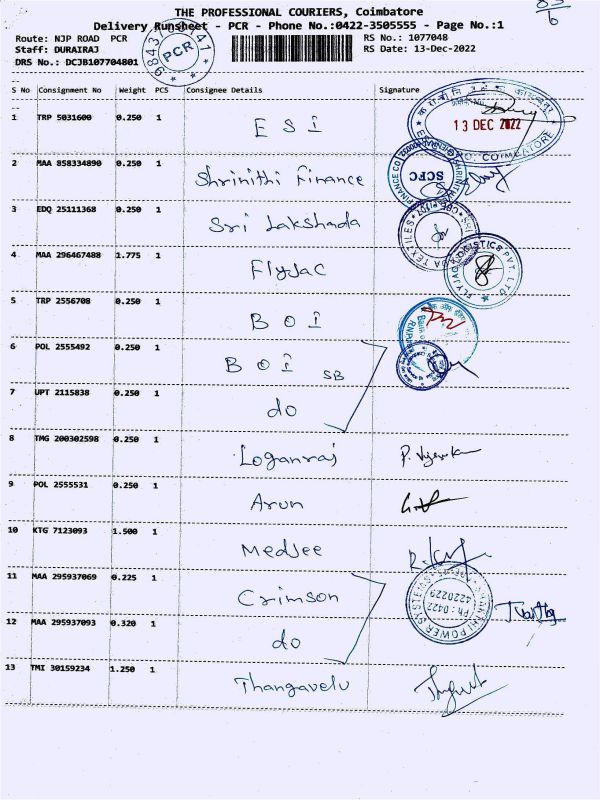 THE PROFESSIONAL COURIERS, Coimbatore
Delivery Runsheet - PCR - Phone No.:0422-3505555 - Page No.:1
Route: NJP ROAD PCR
RS No.: 1077048
Staff: DURAIRAJ
RS Date: 13-Dec-2022
DRS No.: DCJB107704801
PCR
S No Consignment No Weight PCS Consignee Details Signature
1 TRP 5031600 0.250 1 ESI
13 DEC 2022
COIMBATORE
2 MAA 858334890 0.250 1 Shrinithi Finance
SCFC
3 EDQ 25111368 0.250 1 Sri Lakshada
4 MAA 296467488 1.775 1 Flyjac
5 TRP 2556708 0.250 1 BOI
6 POL 2555492 0.250 1 BOI SB
7 UPT 2115838 0.250 1 do
8 TMG 200302598 0.250 1 Loganraj
9 POL 2555531 0.250 1 Arun
10 KTG 7123093 1.500 1 Medjee
11 MAA 295937069 0.225 1 Crimson
Ph : 0422
4220229
12 MAA 295937093 0.320 1 do
13 TMI 30159234 1.250 1 Thangavelu